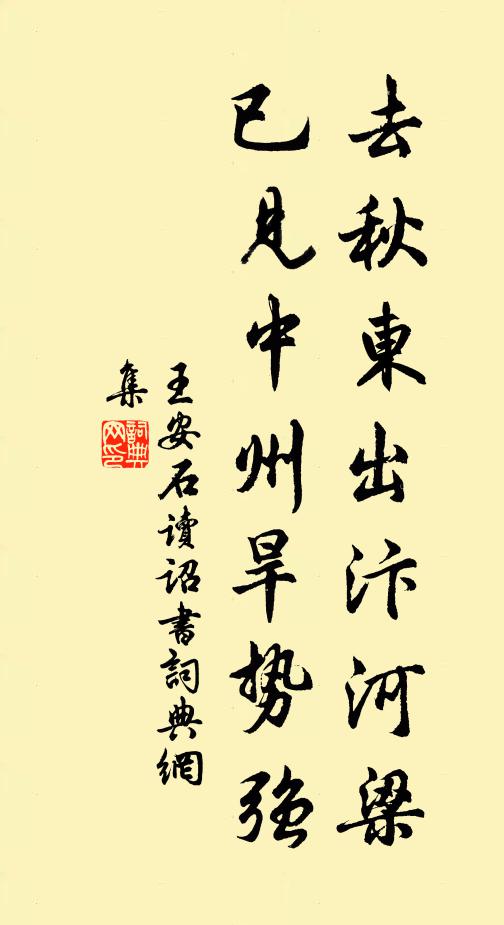 去秋東出汴河梁
已見中州旱势強
王安石讀詔書詞典網
集
詞典
网印